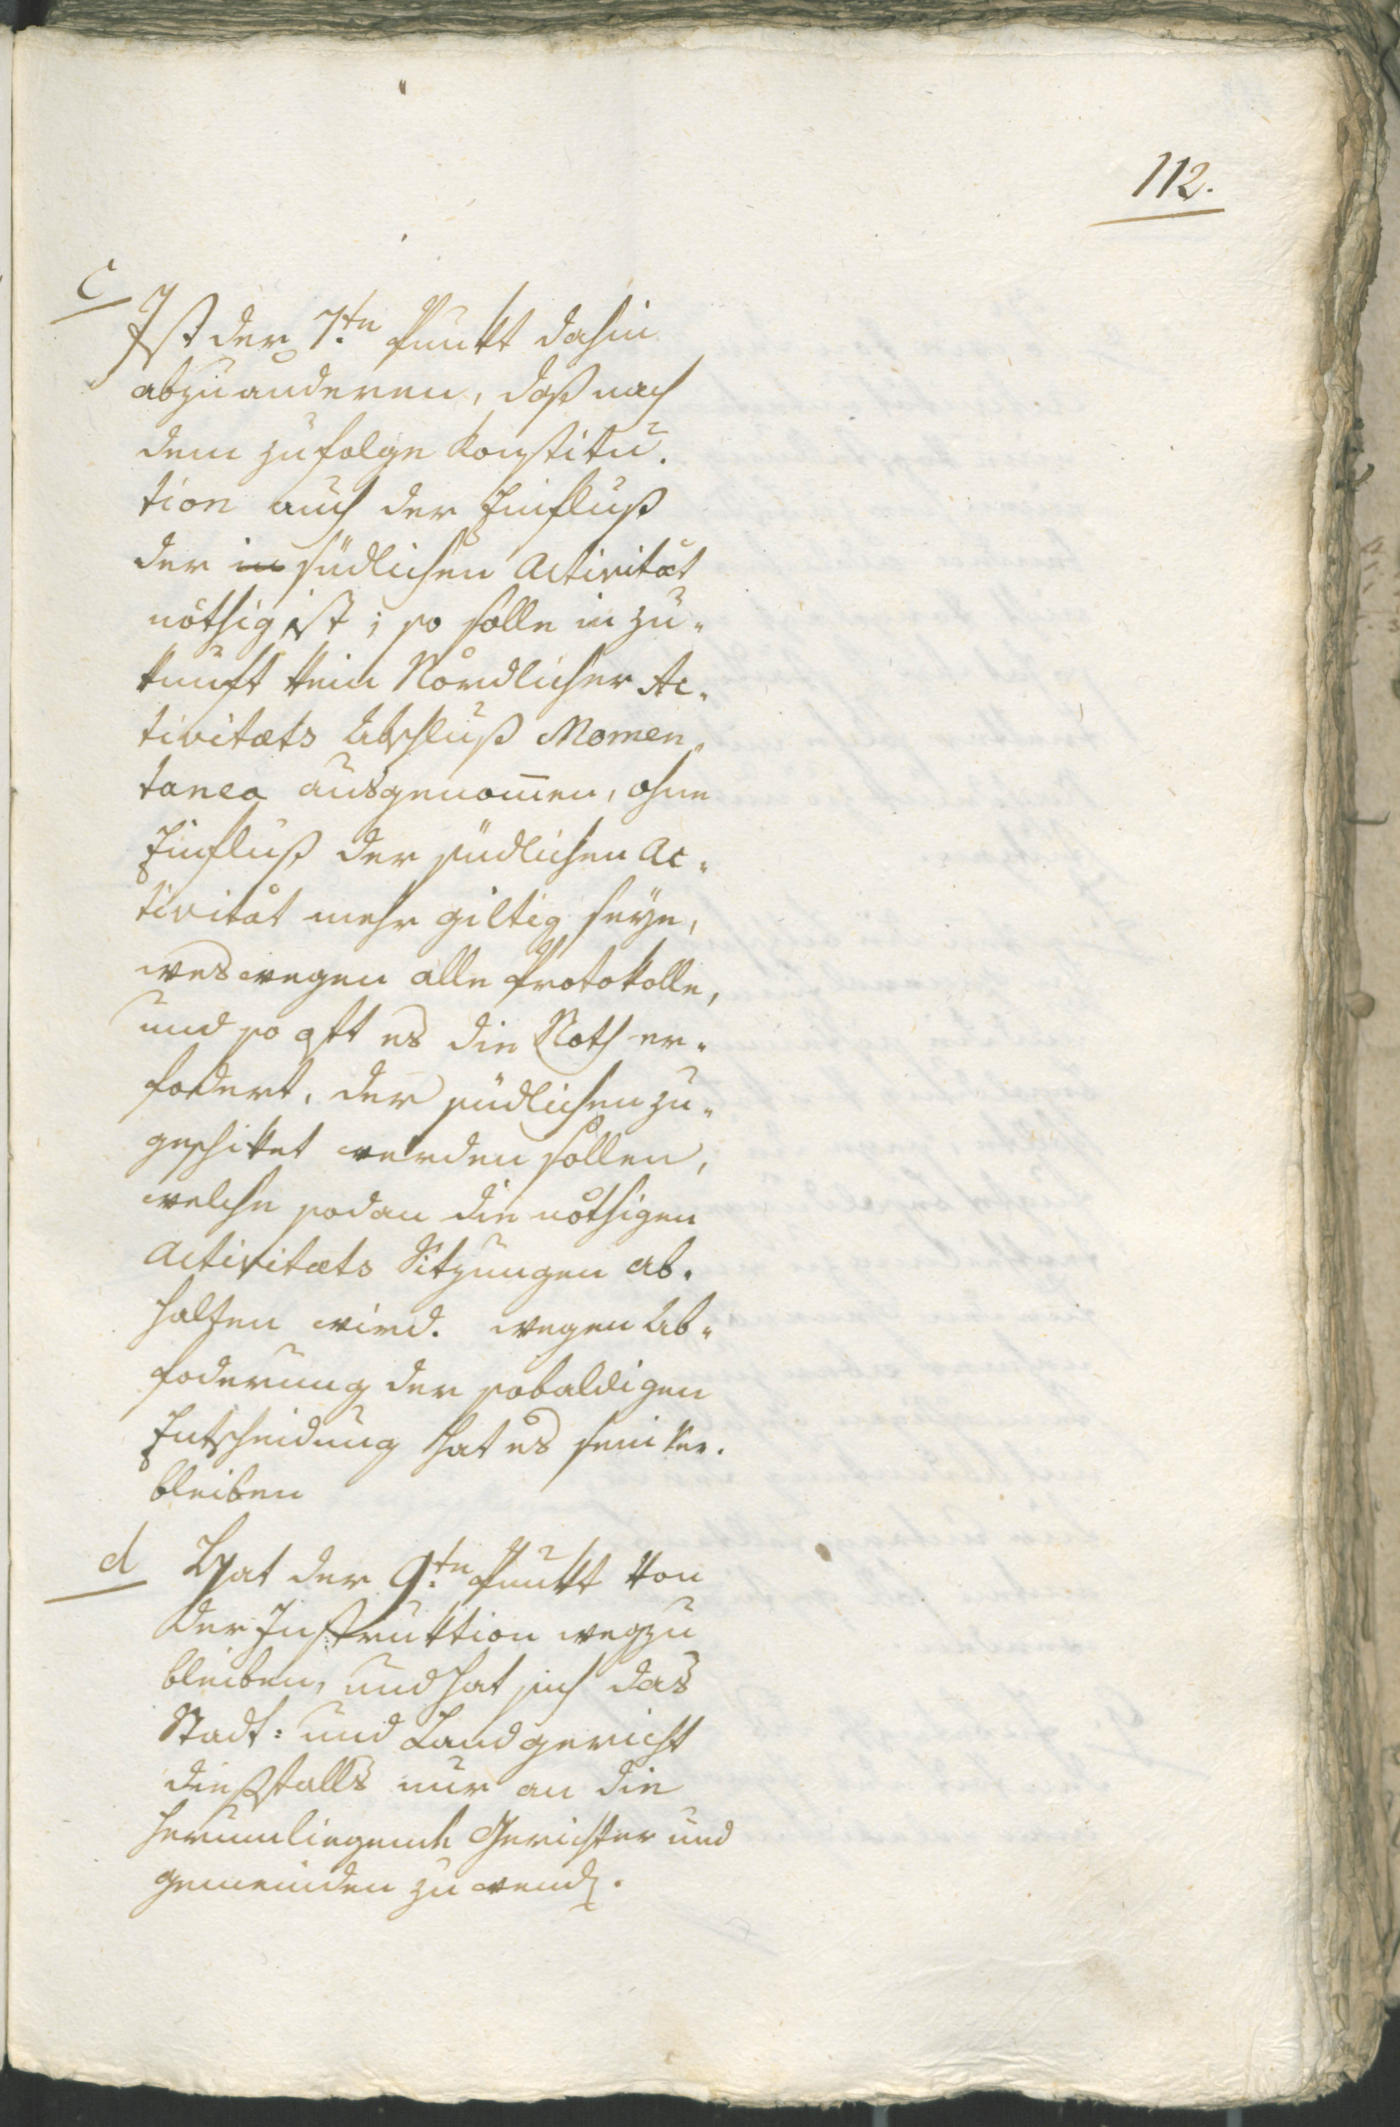 112.
c
Ist der 7.tn Punkt dahin
abzuanderen, daß nach
dem zufolge Konstitu-
tion auch der Einfluß
der in südlichen Activität
nöthig ist; so solle in zu-
kunft kein Nördlicher Ac-
tivitæts Abschluß Momen-
tanea ausgenom̅en, ohne
Einfluß der südlichen Ac-
tivität mehr giltig seye,
weswegen alle Protokolle,
und so oft es die Noth er-
fodert, der südlichen zu-
geschiket werden sollen,
welche sodan die nöthigen
Activitæts Sitzungen ab-
halten wird. wegen Ab-
foderung der sobaldigen
Entscheidung hat es sein Ver-
bleiben
d Hat der 9.tn Punkt von
der Instruktion wegzu
bleiben, und hat sich das
Stadt: und Landgericht
dießfalls nur an die
herumliegende Gerichter und
gemeinden zu wend.